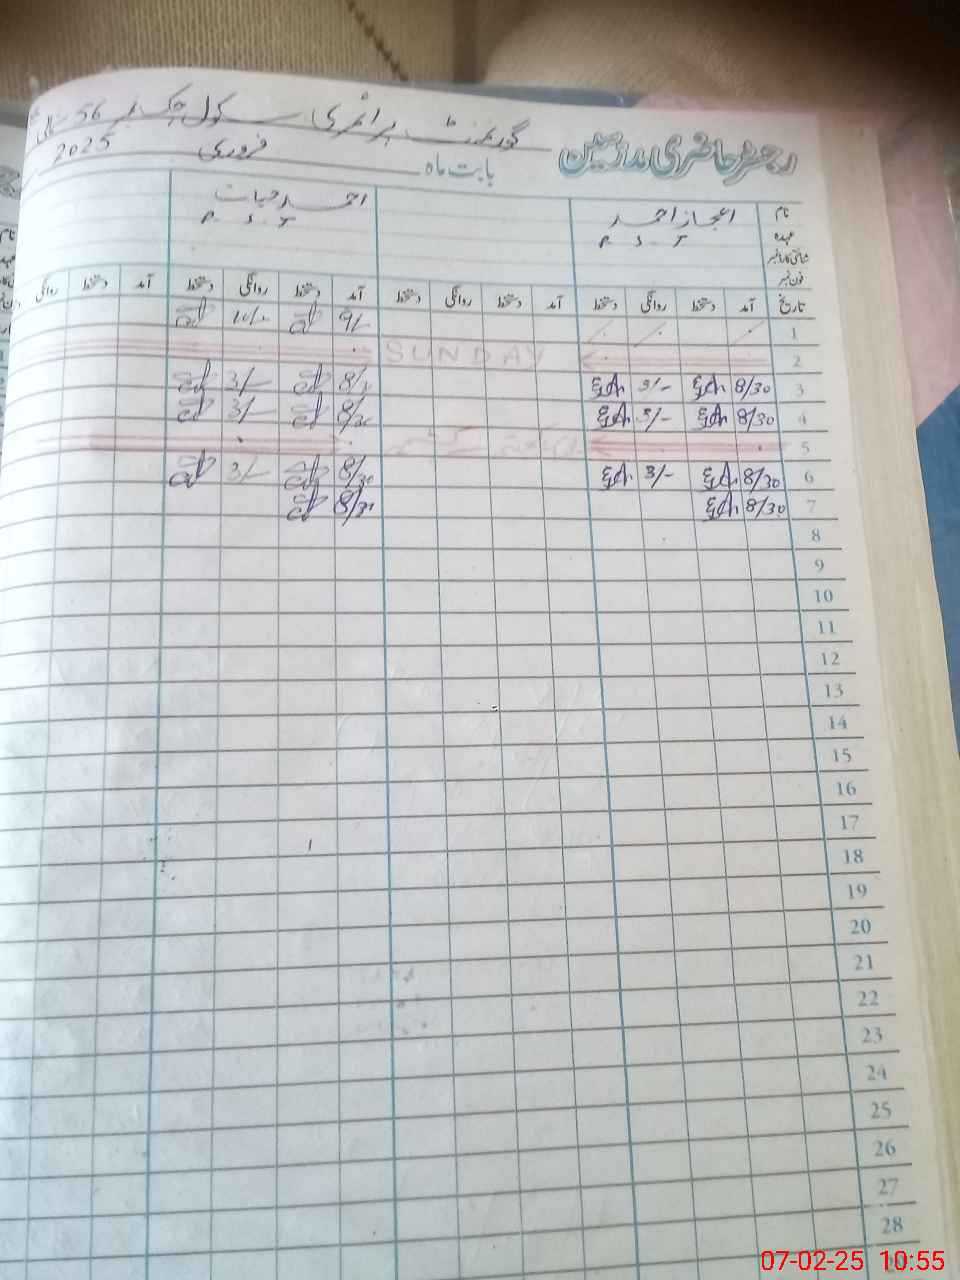 رجسٹر حاضری مدرسین گورنمنٹ پرائمری سکول چک نمبر 56 شمالی
بابت ماہ فروری 2025
نام اعجاز احمد احمد حیات
عہدہ P.S.T P.S.T
شناختی کارڈ نمبر
فون نمبر
تاریخ آمد دستخط روانگی دستخط آمد دستخط روانگی دستخط آمد دستخط روانگی دستخط آمد دستخط روانگی
1 9/-
2 SUNDAY
3 8/30 3/- 8/30 3/-
4 8/30 3/- 8/30 3/-
5
6 8/30 3/- 8/30 3/-
7 8/30 8/30
8
9
10
11
12
13
14
15
16
17
18
19
20
21
22
23
24
25
26
27
28
07-02-25 10:55